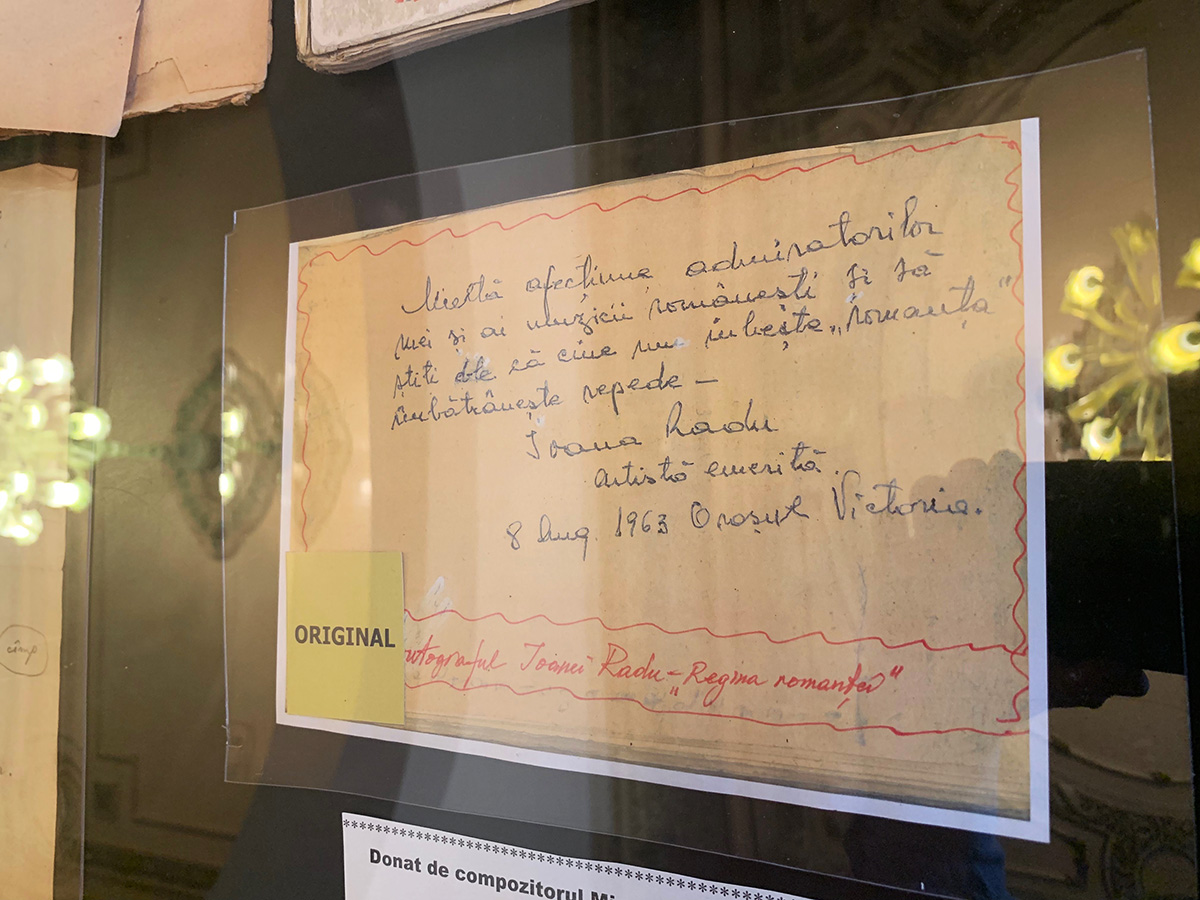 Multă afecțiune admiratorilor
mei și ai muzicii românești și să
știți că cine nu iubește „romanța"
îmbătrânește repede –
Ioana Radu
artistă emerită.
8 Aug. 1963 Orașul Victoria.
ORIGINAL
utograful Ioanei Radu – „Regina romanței"
câmp
Donat de compozitorul Mi